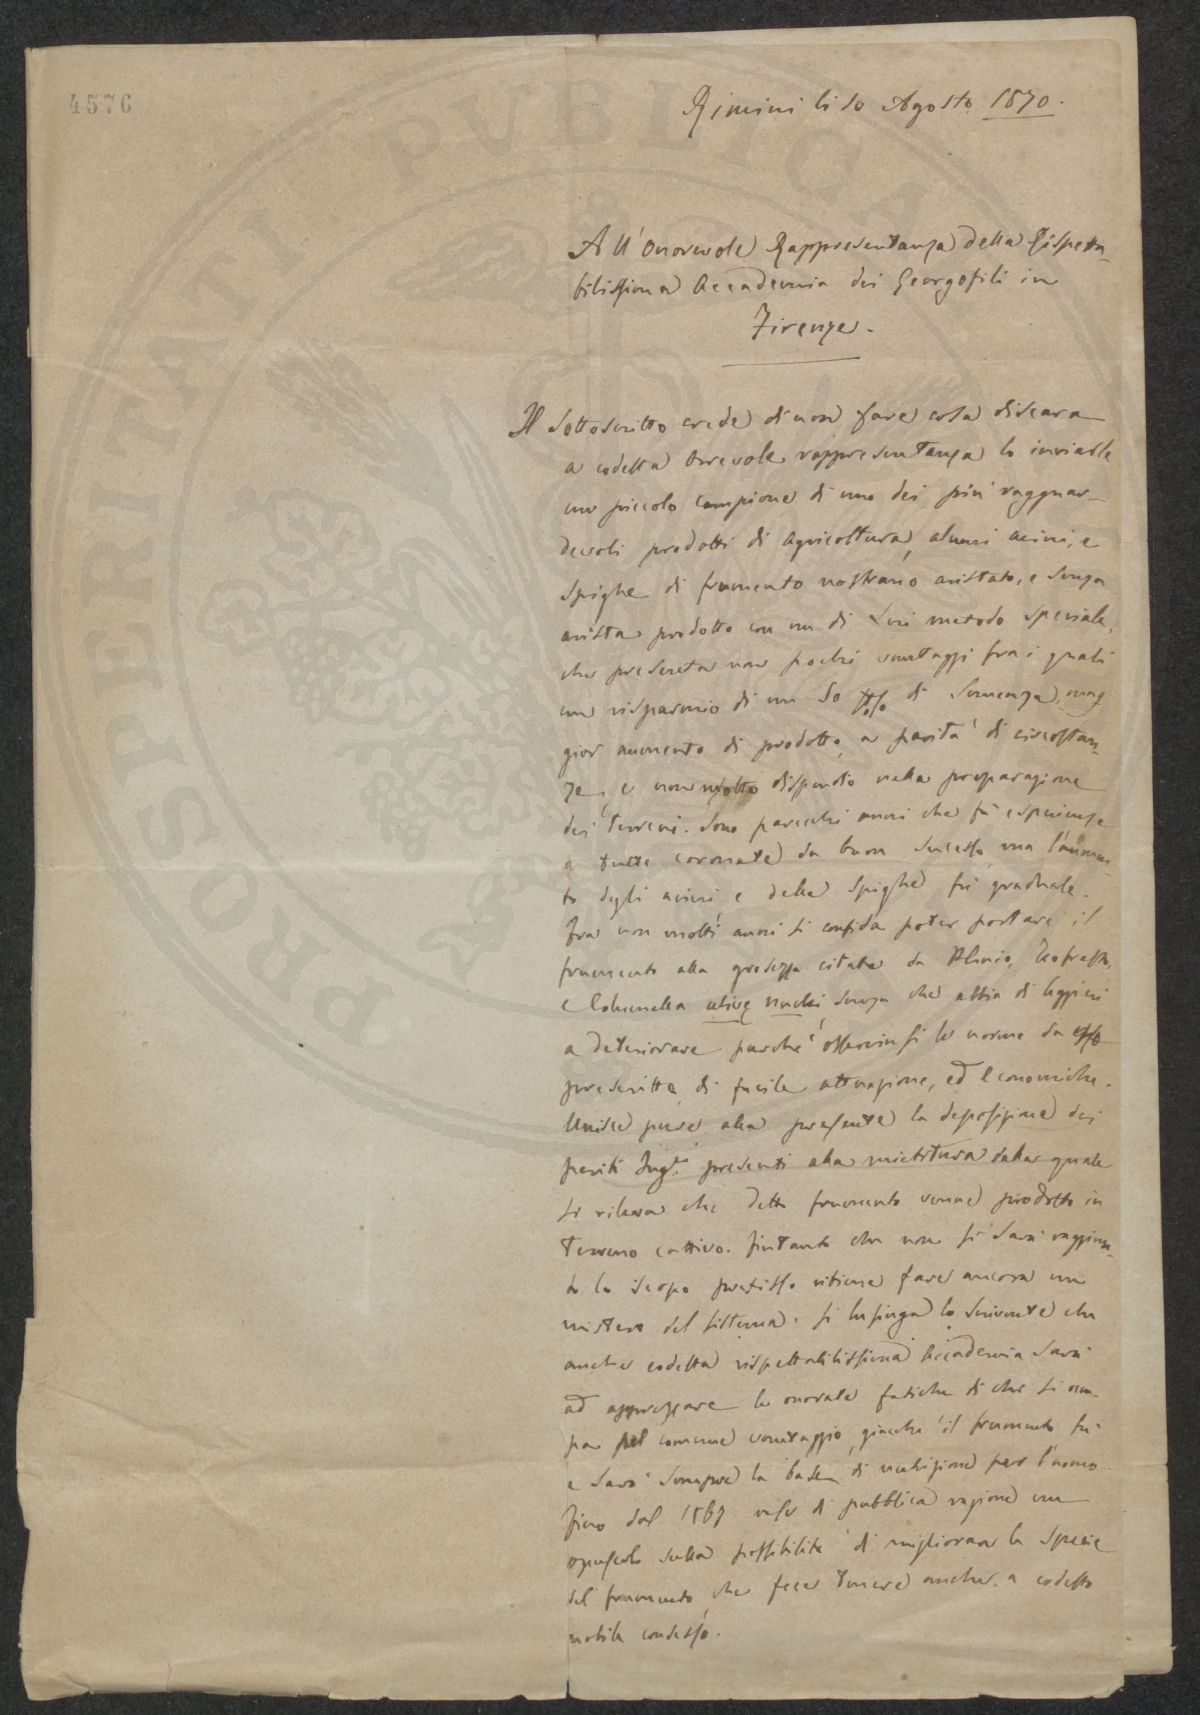 4576
Rimini li 10 Agosto 1870.
All'Onorevole Rappresentanza della Rispetta-
bilissima Accademia dei Georgofili in
Firenze.
Il Sottoscritto crede di non fare cosa discara
a codesta Orrevole rappresentanza lo inviarle
un piccolo campione di uno dei più ragguar-
devoli prodotti di agricoltura, alcuni acini, e
spighe di frumento nostrano aristato, e senza
arista prodotto con un di Lui metodo speciale,
che presenta non pochi vantaggi fra i quali
un risparmio di un 50 % di Semenza, mag
gior aumento di prodotto, a parità di circostan-
ze, e non molto dispendio nella preparazione
dei terreni. Sono parecchi anni che fa esperienze
e tutte coronate da buon sucesso, ma l'aumen-
to degli acini e delle spighe fu graduale.
Fra non molti anni si confida poter portare il
frumento alla grosezza citata da Plinio, Teofrasto,
e Columella senza che abbia di leggieri
a deteriorare purchè osservinsi le norme da esso
prescritte, di facile attuazione, ed economiche.
Unisce pure alla presente la deposizione dei
periti Ing.i presenti alla mietitura dalla quale
si rileva che detto frumento venne prodotto in
terreno cattivo. Fintanto che non si sarà raggiun-
to lo scopo prefisso ritiene fare ancora un
mistero del sistema. Si lusinga lo scrivente che
anche codesta rispettabilissima Accademia sarà
ad apprezzare le onorate fatiche di che si occu-
pa pel comune vantaggio, giacchè il frumento fu
e sarà sempre la base di nutrizione per l'uomo.
Fino dal 1867 rese di pubblica ragione un
opuscolo sulla possibilità di migliorare la specie
del frumento, che fece tenere anche a codesto
nobile consesso.